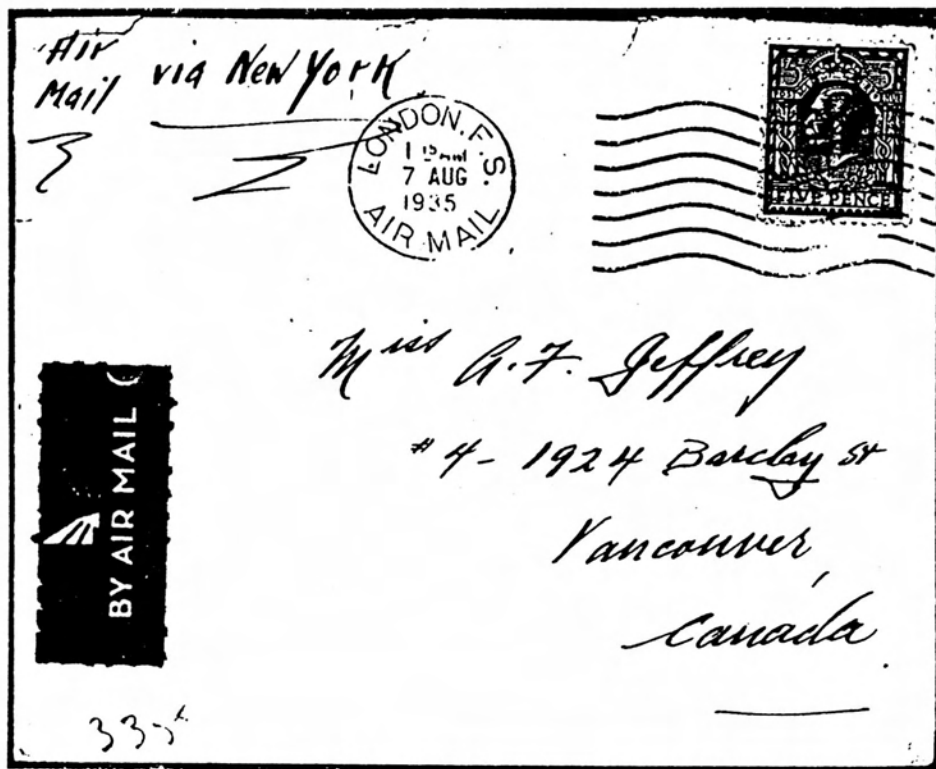 Air
Mail
via New York
LONDON. F.S.
1 15 AM
7 AUG
1935
AIR MAIL
5 5
FIVE PENCE
Miss A. F. Jeffrey
#4 - 1924 Barclay St
Vancouver,
Canada
BY AIR MAIL